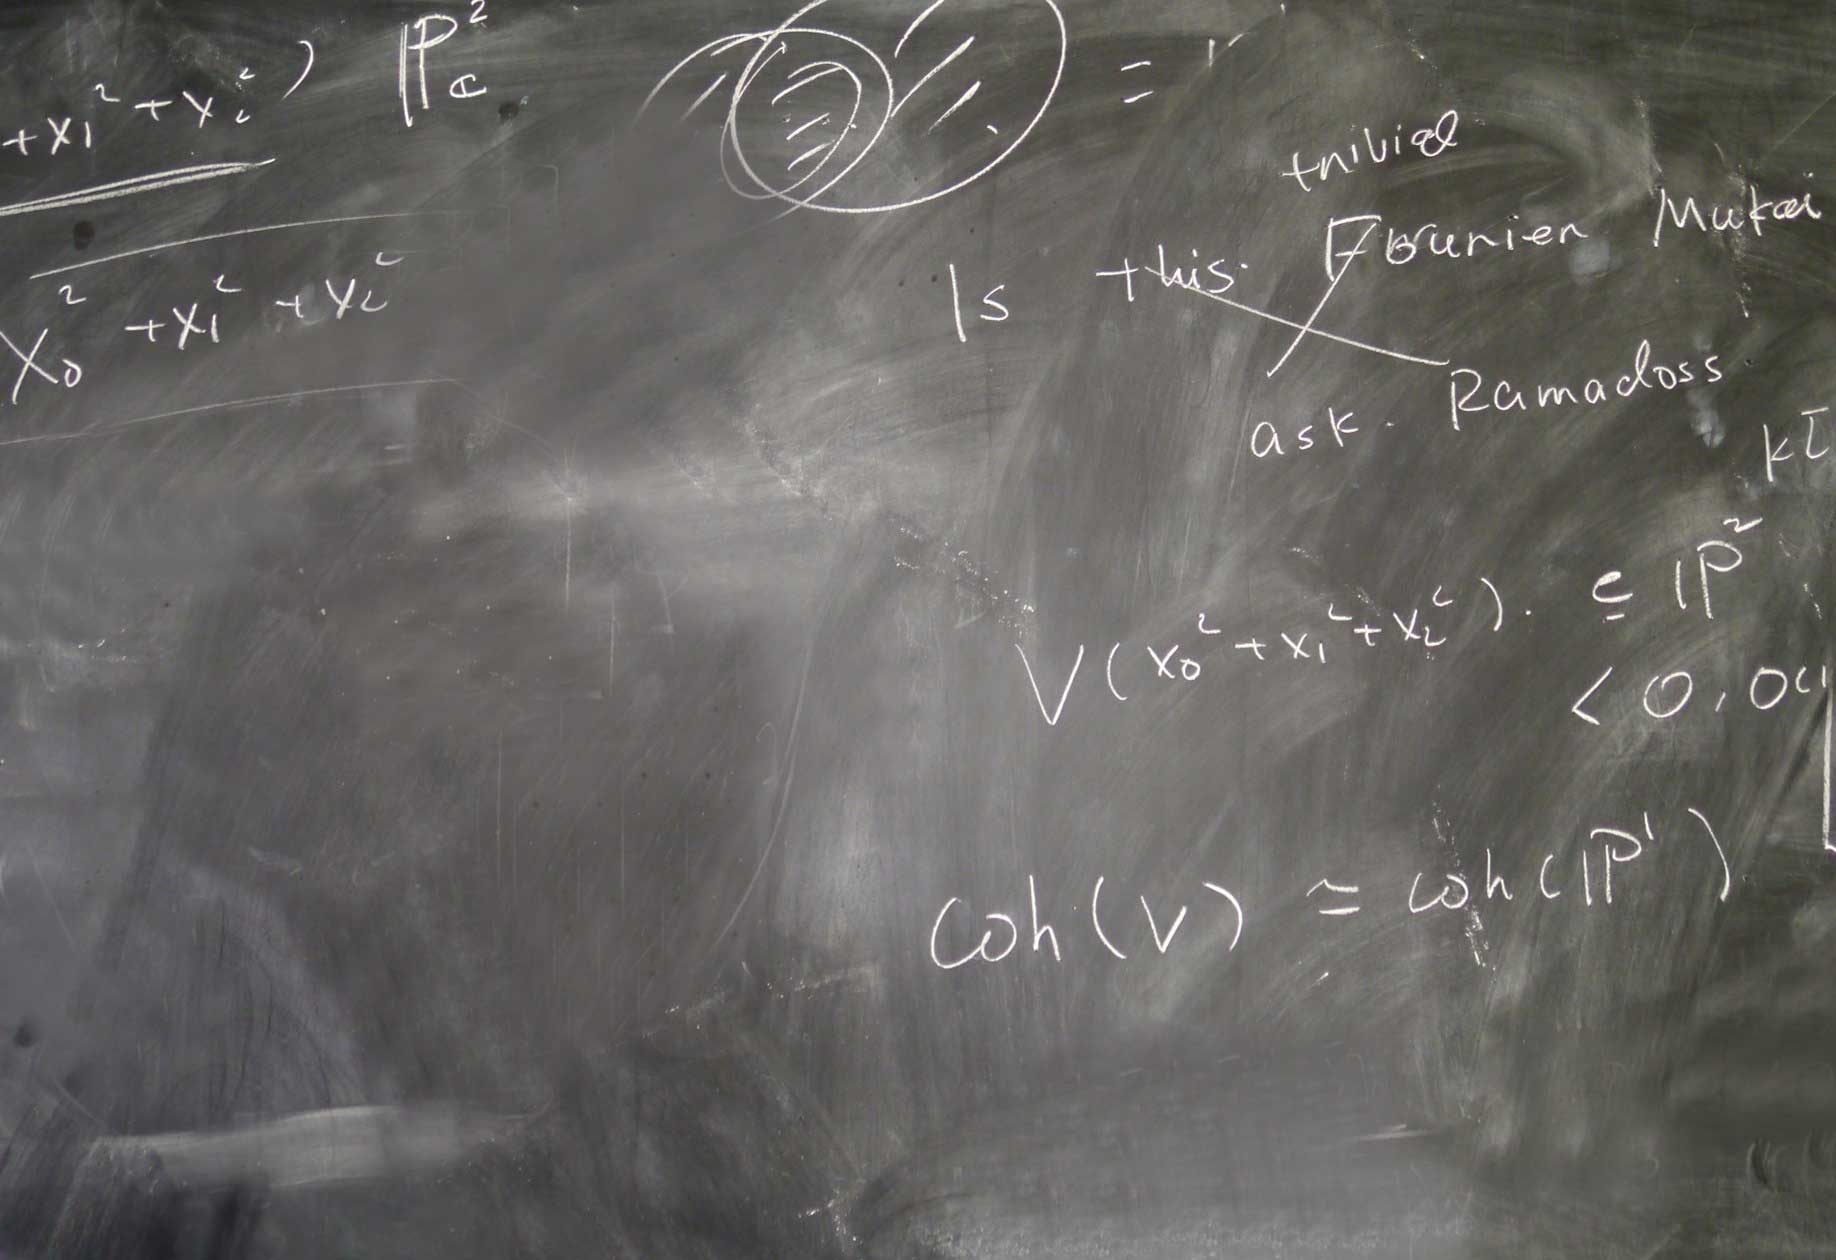 +x₁² + x₂²) ℙ²_ℂ
=
x₀² + x₁² + x₂²
trivial
Is this Fourier Mukai
ask. Ramadoss
V(x₀² + x₁² + x₂²). ⊆ ℙ²
< O, O(1
Coh(V) ≃ coh(ℙ¹)